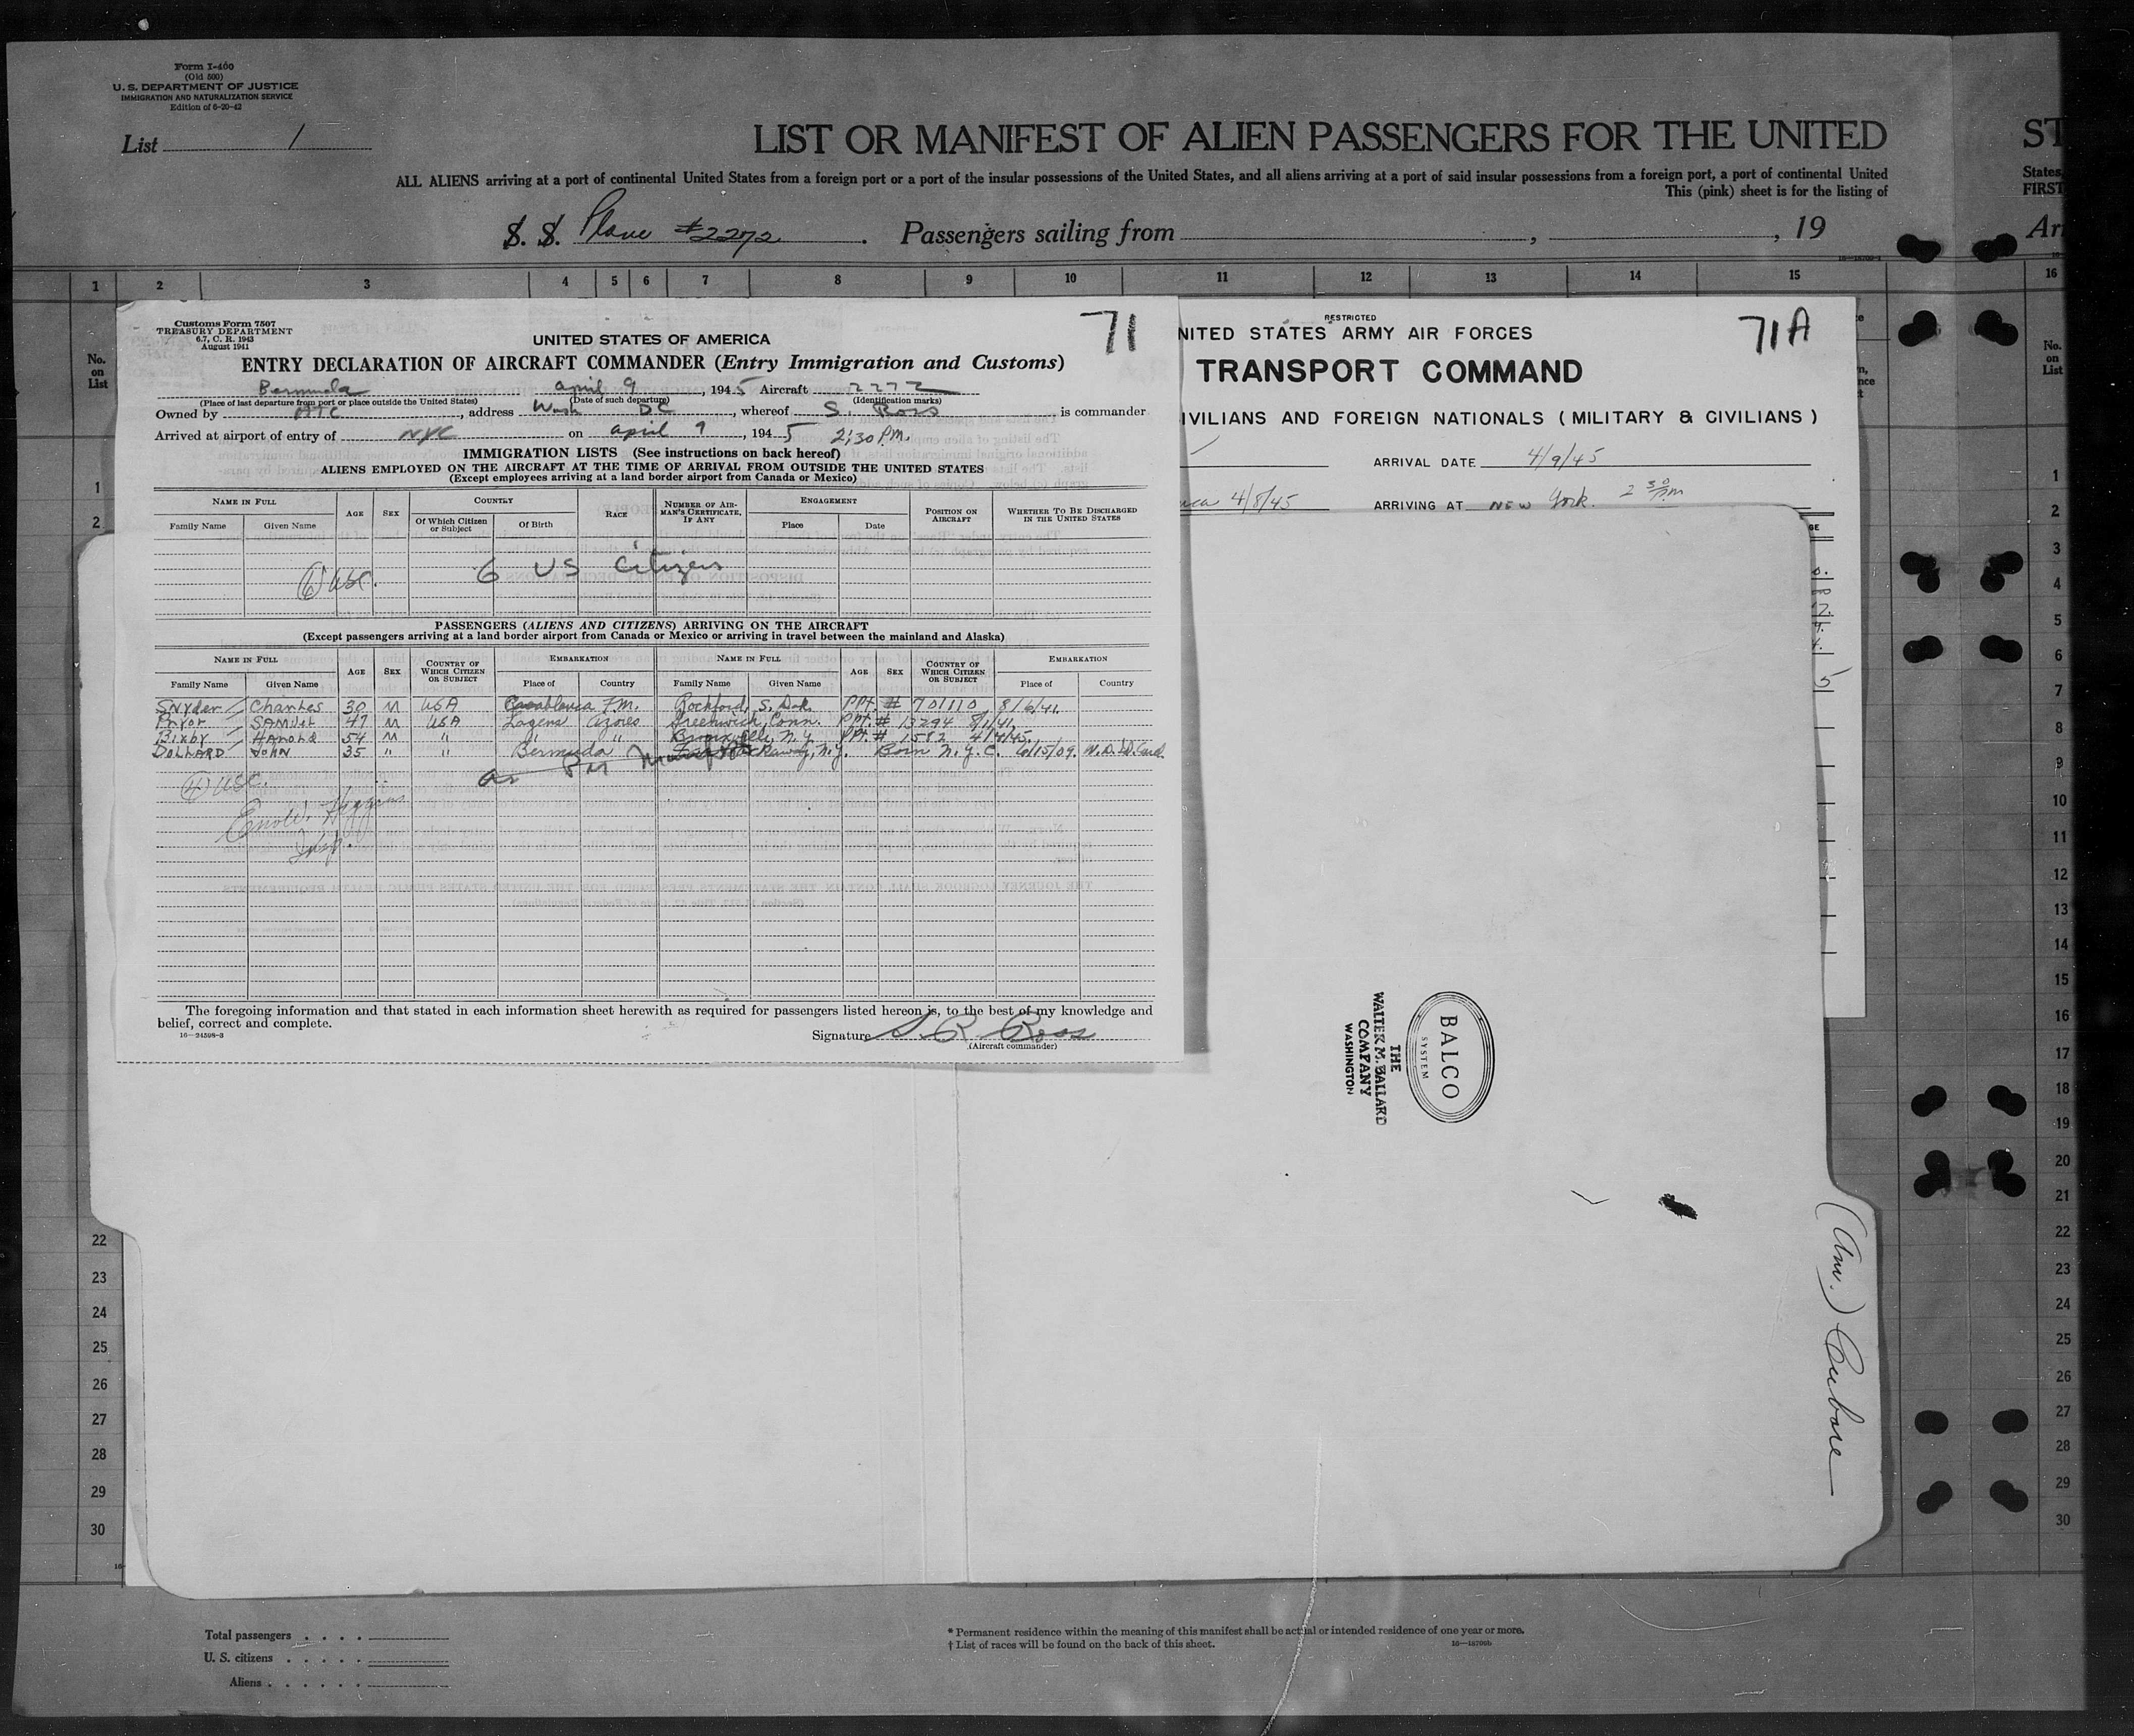 Form I-400
(Old 500)
U. S. DEPARTMENT OF JUSTICE
IMMIGRATION AND NATURALIZATION SERVICE
Edition of 6-20-42
List 1
LIST OR MANIFEST OF ALIEN PASSENGERS FOR THE UNITED
ST
ALL ALIENS arriving at a port of continental United States from a foreign port or a port of the insular possessions of the United States, and all aliens arriving at a port of said insular possessions from a foreign port, a port of continental United
States
This (pink) sheet is for the listing of
FIRST
S. S. Plane #2272. Passengers sailing from , , 19
Arr
1 2 3 4 5 6 7 8 9 10 11 12 13 14 15 16
No. on List
No. on List
Customs Form 7507
TREASURY DEPARTMENT
6.7, C. R. 1943
August 1941
71
UNITED STATES OF AMERICA
ENTRY DECLARATION OF AIRCRAFT COMMANDER (Entry Immigration and Customs)
Bermuda April 9, 1945 Aircraft 2272
(Place of last departure from port or place outside the United States) (Date of such departure) (Identification marks)
Owned by ATC, address Wash DC, whereof S. Ross is commander
Arrived at airport of entry of NYC on April 9, 1945 2:30 P.M.
IMMIGRATION LISTS (See instructions on back hereof)
ALIENS EMPLOYED ON THE AIRCRAFT AT THE TIME OF ARRIVAL FROM OUTSIDE THE UNITED STATES
(Except employees arriving at a land border airport from Canada or Mexico)
NAME IN FULL AGE SEX COUNTRY RACE NUMBER OF AIRMAN'S CERTIFICATE, IF ANY ENGAGEMENT POSITION ON AIRCRAFT WHETHER TO BE DISCHARGED IN THE UNITED STATES
Family Name Given Name Of Which Citizen or Subject Of Birth Place Date
6 USC. 6 US Citizens
PASSENGERS (ALIENS AND CITIZENS) ARRIVING ON THE AIRCRAFT
(Except passengers arriving at a land border airport from Canada or Mexico or arriving in travel between the mainland and Alaska)
NAME IN FULL AGE SEX COUNTRY OF WHICH CITIZEN OR SUBJECT EMBARKATION NAME IN FULL AGE SEX COUNTRY OF WHICH CITIZEN OR SUBJECT EMBARKATION
Family Name Given Name Place of Country Family Name Given Name Place of Country
Snyder Charles 30 M USA Casablanca F.M. Rockford, S. Dak. PPt. # 701110 8/6/41.
Pryor 47 M USA Lagens Azores Greenwich, Conn. PPt. # 13294 8/1/41
Bixby Harold 54 M " " " Bronxville, N.Y. PPt. # 1582 4/4/45.
DOLLARD JOHN 35 " " Bermuda Far Rockaway, N.Y. Born N.Y.C. 6/15/09. W.D. ID. Card.
4 USC.
Higgins
Insp.
The foregoing information and that stated in each information sheet herewith as required for passengers listed hereon is, to the best of my knowledge and
belief, correct and complete.
16—24598-3
Signature S. R. Ross
(Aircraft commander)
RESTRICTED
NITED STATES ARMY AIR FORCES
71A
TRANSPORT COMMAND
IVILIANS AND FOREIGN NATIONALS ( MILITARY & CIVILIANS )
ARRIVAL DATE 4/9/45
4/8/45 ARRIVING AT NEW York. 2 30 PM
BALCO
SYSTEM
THE
WALTER M. BALLARD
COMPANY
WASHINGTON
1
2
22
23
24
25
26
27
28
29
30
1
2
3
4
5
6
7
8
9
10
11
12
13
14
15
16
17
18
19
20
21
22
23
24
25
26
27
28
29
30
Total passengers
U. S. citizens
Aliens
* Permanent residence within the meaning of this manifest shall be actual or intended residence of one year or more.
† List of races will be found on the back of this sheet.
16—18700b